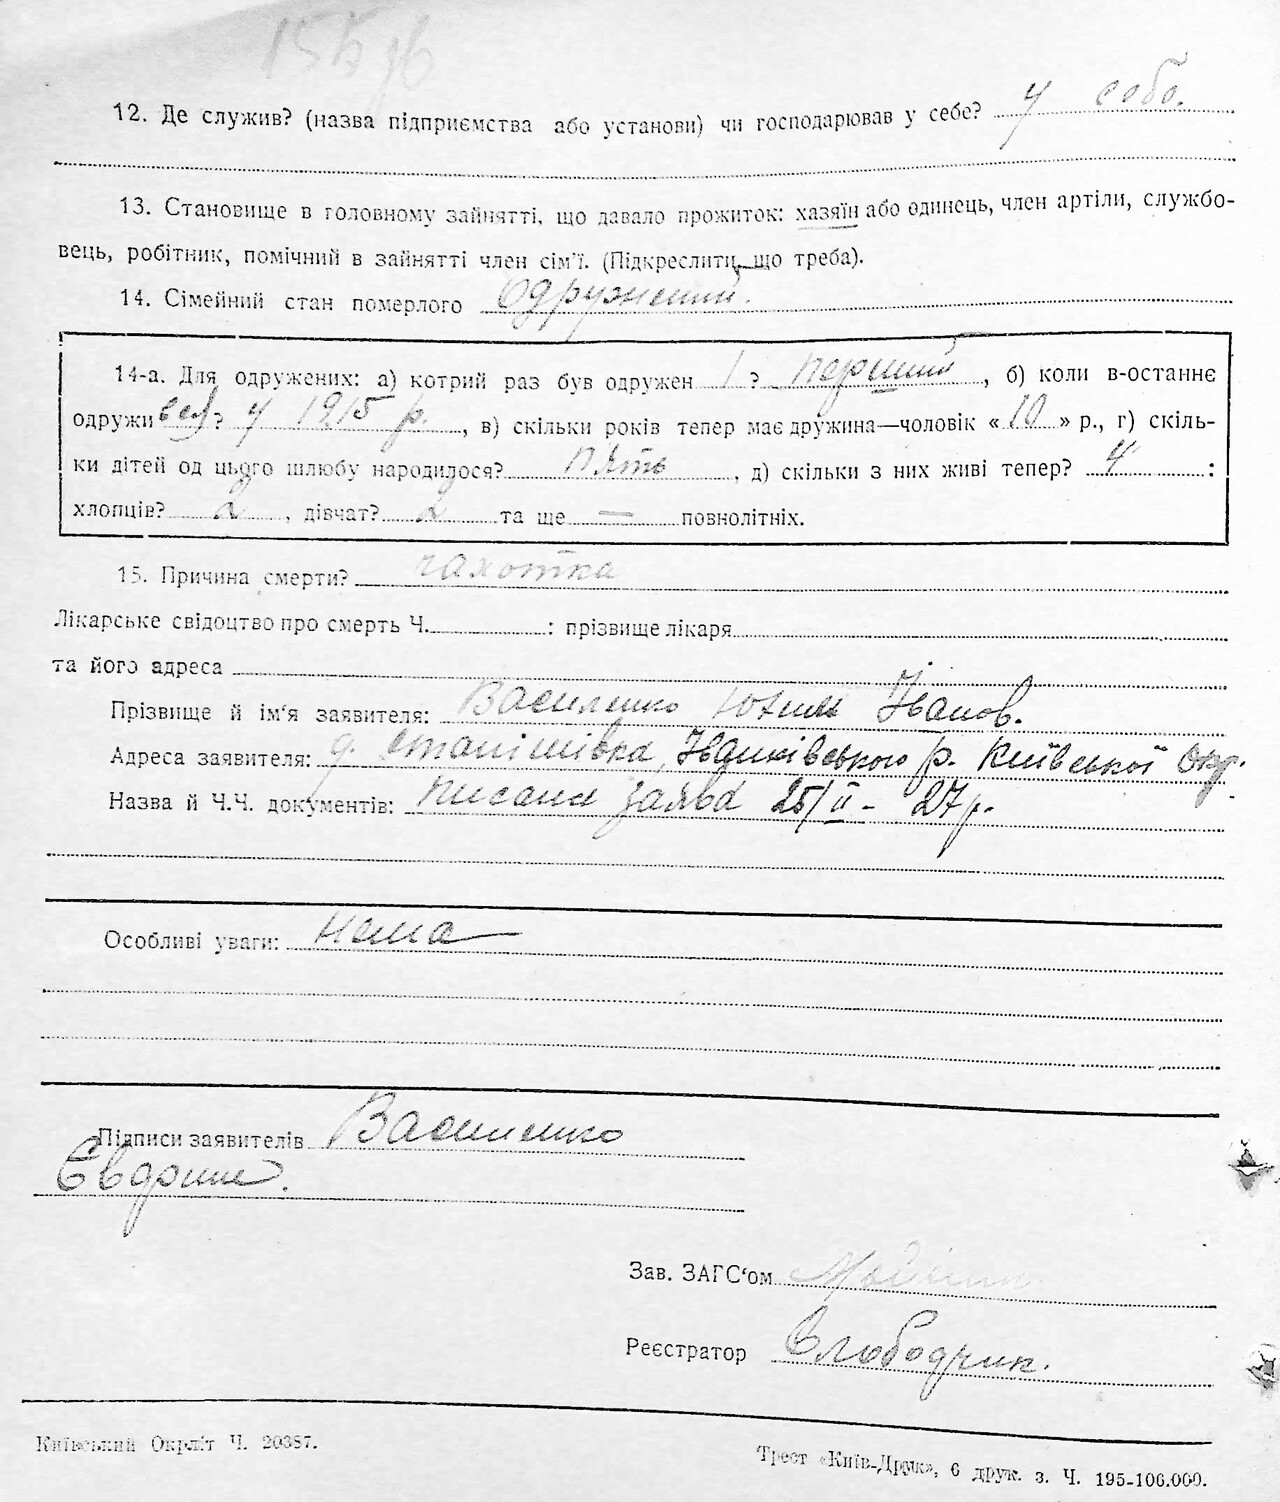 155 зв
12. Де служив? (назва підприємства або установи) чи господарював у себе? у собо.
13. Становище в головному зайнятті, що давало прожиток: хазяїн або одинець, член артіли, службо-
вець, робітник, помічний в зайнятті член сім'ї. (Підкреслити, що треба).
14. Сімейний стан померлого Одружений.
14-а. Для одружених: а) котрий раз був одружен 1 ? перший, б) коли в-останнє
одружився? у 1915 р., в) скільки років тепер має дружина—чоловік «10» р., г) скіль-
ки дітей од цього шлюбу народилося? пять, д) скільки з них живі тепер? 4 :
хлопців? 2, дівчат? 2 та ще — повнолітніх.
15. Причина смерти? чахотка
Лікарське свідоцтво про смерть Ч. : прізвище лікаря
та його адреса
Прізвище й ім'я заявителя: Василенко Юхим Іванов.
Адреса заявителя: д. Станішівка, Іванківського р. Київської Окр.
Назва й Ч.Ч. документів: заява 25/II - 27 р.
Особливі уваги: нема
Підписи заявителів Василенко
Зав. ЗАГС'ом
Реєстратор Слободчик.
Київський Окрліт Ч. 20387.
Трест «Київ-Друк», 6 друк. з. Ч. 195-106.000.